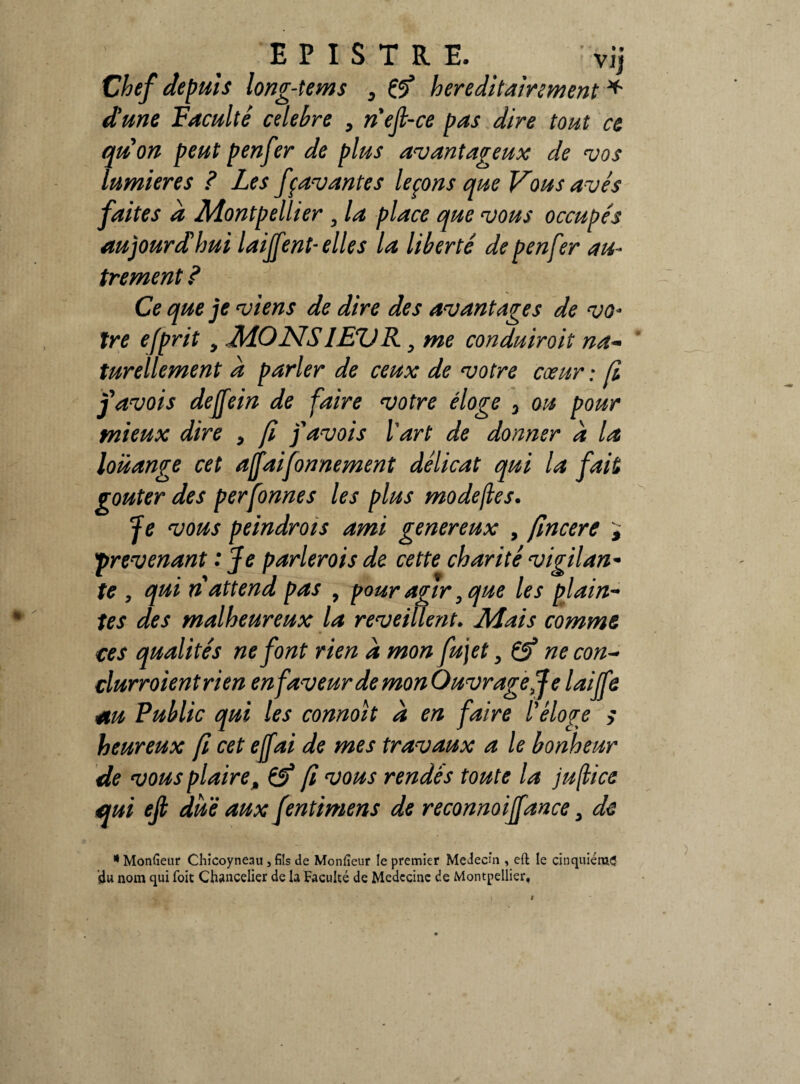 EPISTRE. vij
Chef depuis long-tems , & hereditairement *
d'une Faculté celebre , n'eſt-ce pas dire tout ce
qu'on peut penſer de plus avantageux de vos
lumieres ? Les ſçavantes leçons que Vous avés
faites à Montpellier , la place que vous occupés
aujourd'hui laiſſent-elles la liberté de penſer au-
trement ?
Ce que je viens de dire des avantages de vo-
tre eſprit , MONSIEUR , me conduiroit na-
turellement à parler de ceux de votre cœur : ſi
j'avois deſſein de faire votre éloge , ou pour
mieux dire , ſi j'avois l'art de donner à la
loüange cet aſſaiſonnement délicat qui la fait
gouter des perſonnes les plus modeſtes.
Je vous peindrois ami genereux , ſincere ,
prevenant : Je parlerois de cette charité vigilan-
te , qui n'attend pas , pour agir , que les plain-
tes des malheureux la reveillent. Mais comme
ces qualités ne font rien à mon ſujet , & ne con-
clurroient rien en faveur de mon Ouvrage, Je laiſſe
au Public qui les connoît à en faire l'éloge ;
heureux ſi cet eſſai de mes travaux a le bonheur
de vous plaire, & ſi vous rendés toute la juſtice
qui eſt düe aux ſentimens de reconnoiſſance , de
* Monſieur Chicoyneau , fils de Monſieur le premier Medecin , eſt le cinquiéme
du nom qui ſoit Chancelier de la Faculté de Medecine de Montpellier.